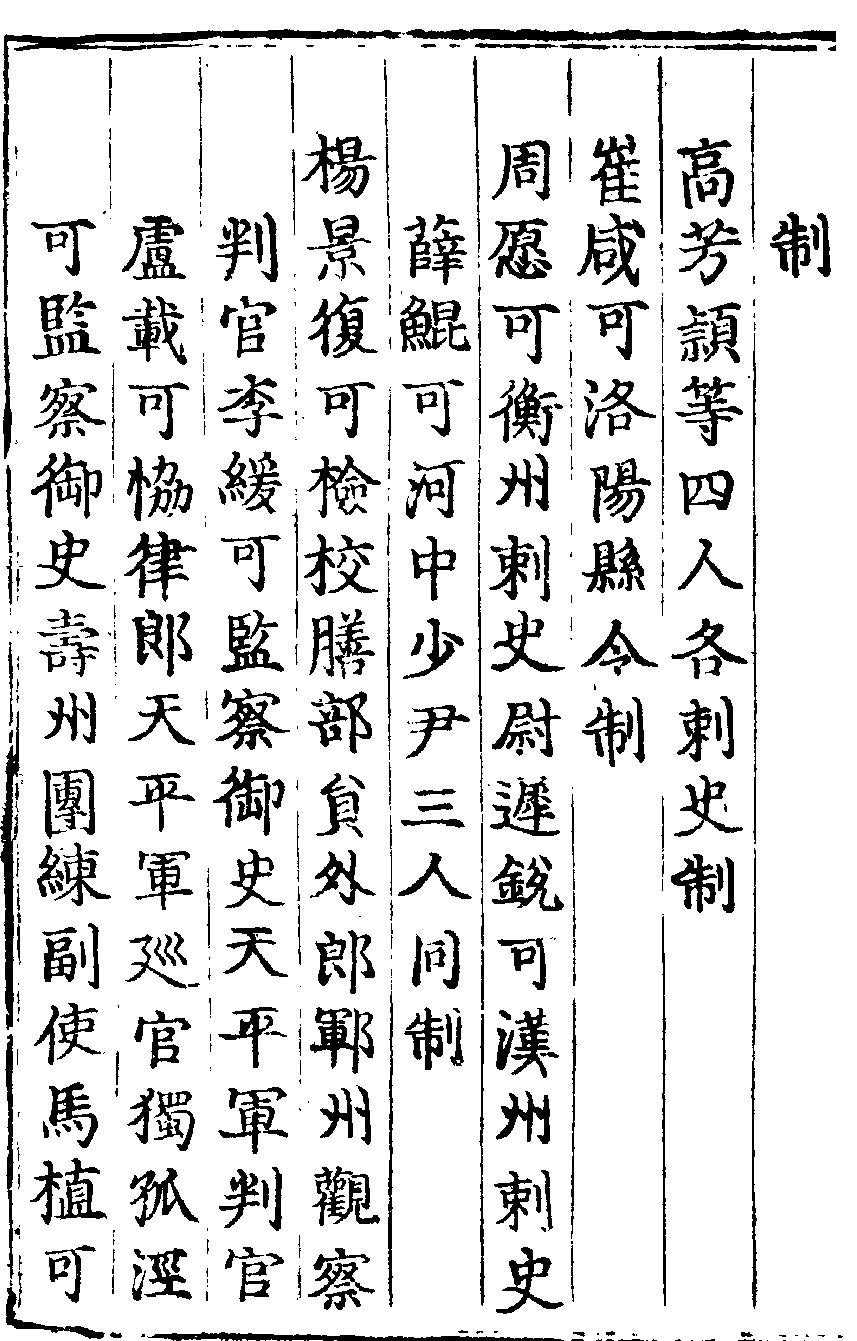 制
高芳頴等四人各刺史制
崔咸可洛陽縣令制
周愿可衡州刺史尉遲銳可漢州刺史
薛鯤可河中少尹三人同制
楊景復可檢校膳部貟外郎鄆州觀察
判官李緩可監察御史天平軍判官
盧載可恊律郎天平軍廵官獨孤涇
可監察御史壽州團練副使馬植可